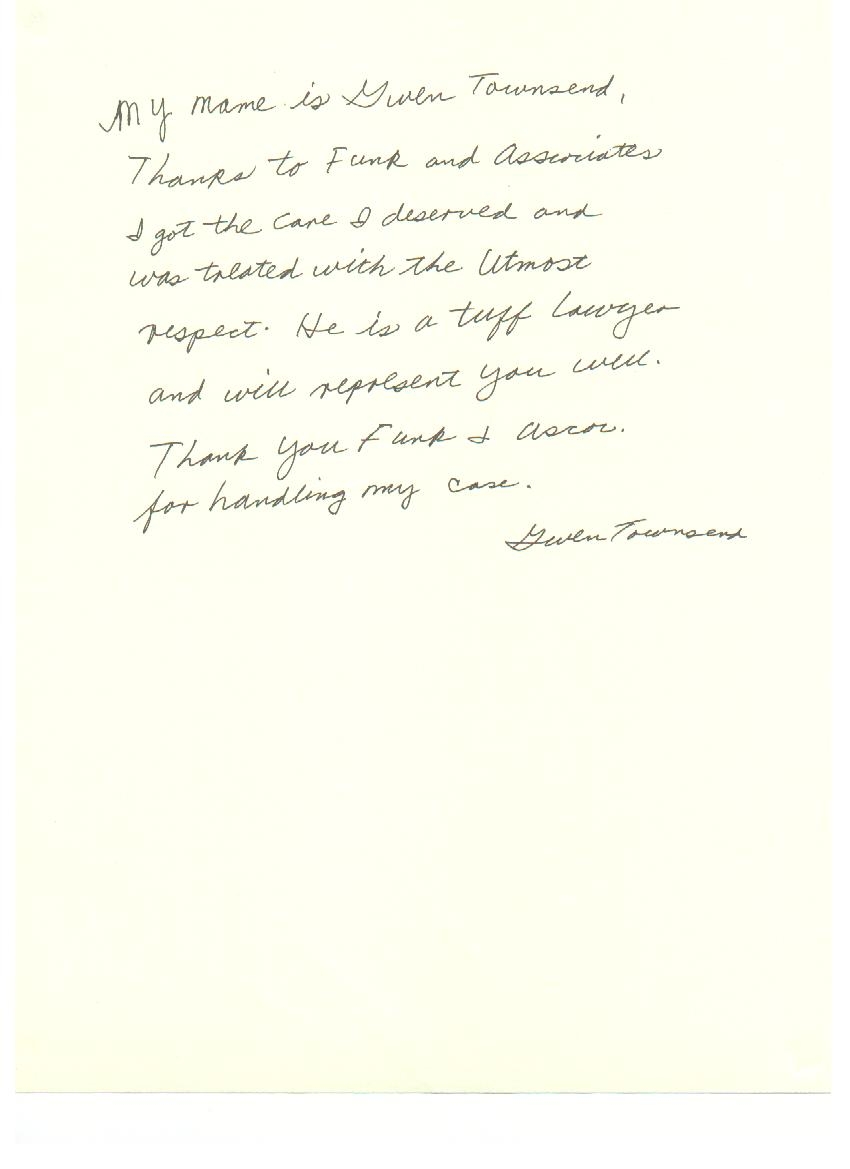 My name is Gwen Townsend,
Thanks to Funk and Associates
I got the care I deserved and
was treated with the Utmost
respect. He is a tuff Lawyer
and will represent you well.
Thank You Funk & Assoc.
for handling my case.
Gwen Townsend